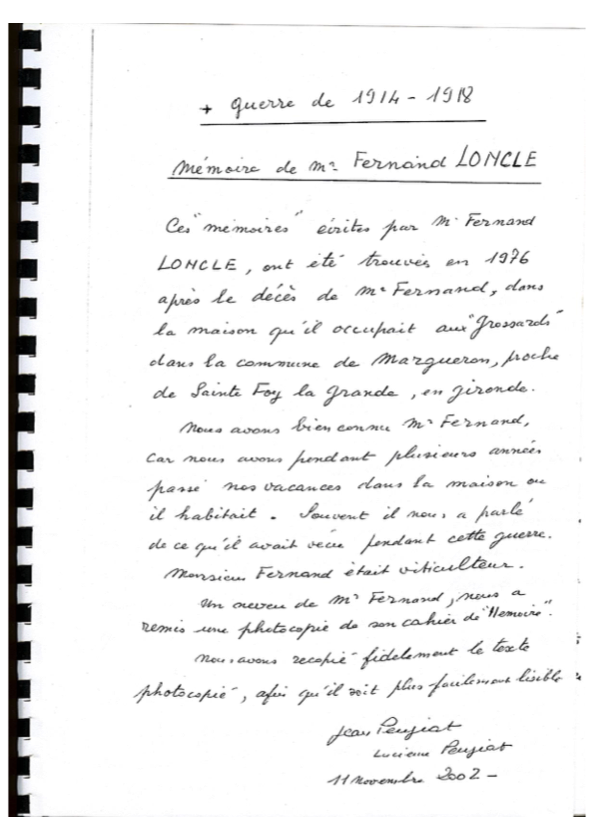 + guerre de 1914-1918
Mémoire de Mr Fernand LONCLE
Ces "mémoires" écrites par Mr Fernand
LONCLE, ont été trouvées en 1976
après le décès de Mr Fernand, dans
la maison qu'il occupait aux "Grossards"
dans la commune de Margueron, proche
de Sainte Foy la Grande, en Gironde.
Nous avons bien connu Mr Fernand,
car nous avons pendant plusieurs années
passé nos vacances dans la maison ou
il habitait. Souvent il nous a parlé
de ce qu'il avait vécu pendant cette guerre.
Monsieur Fernand était viticulteur.
Un neveu de Mr Fernand, nous a
remis une photocopie de son cahier de "Memoire".
Nous avons recopié fidèlement le texte
photocopié, afin qu'il soit plus facilement lisible
Jean Peujiat
Lucienne Peujiat
11 Novembre 2002 -